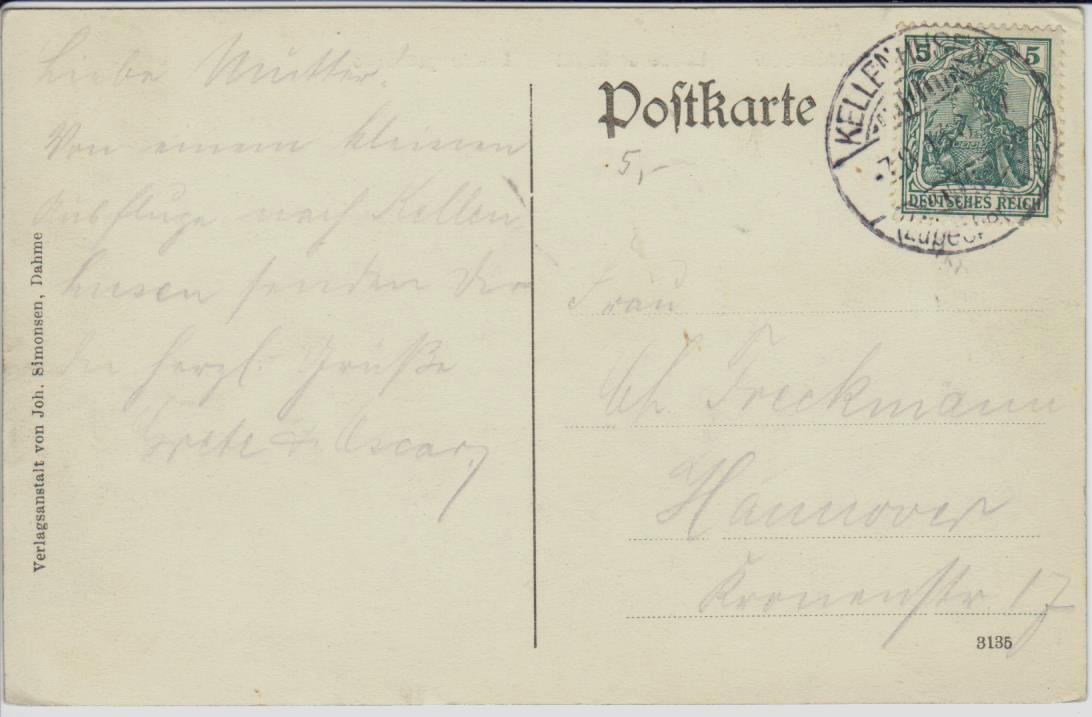 Liebe Mutter.
Von einem kleinen
Ausfluge nach Kellen
husen senden Dir
die herzl. Grüße
Grete & Oscar
Verlagsanstalt von Joh. Simonsen, Dahme
Postkarte
5,-
KELLENHUSEN
(Lübeck
5 5
DEUTSCHES REICH
Frau
Freckmann
Hannover
Kronenstr 17
3135